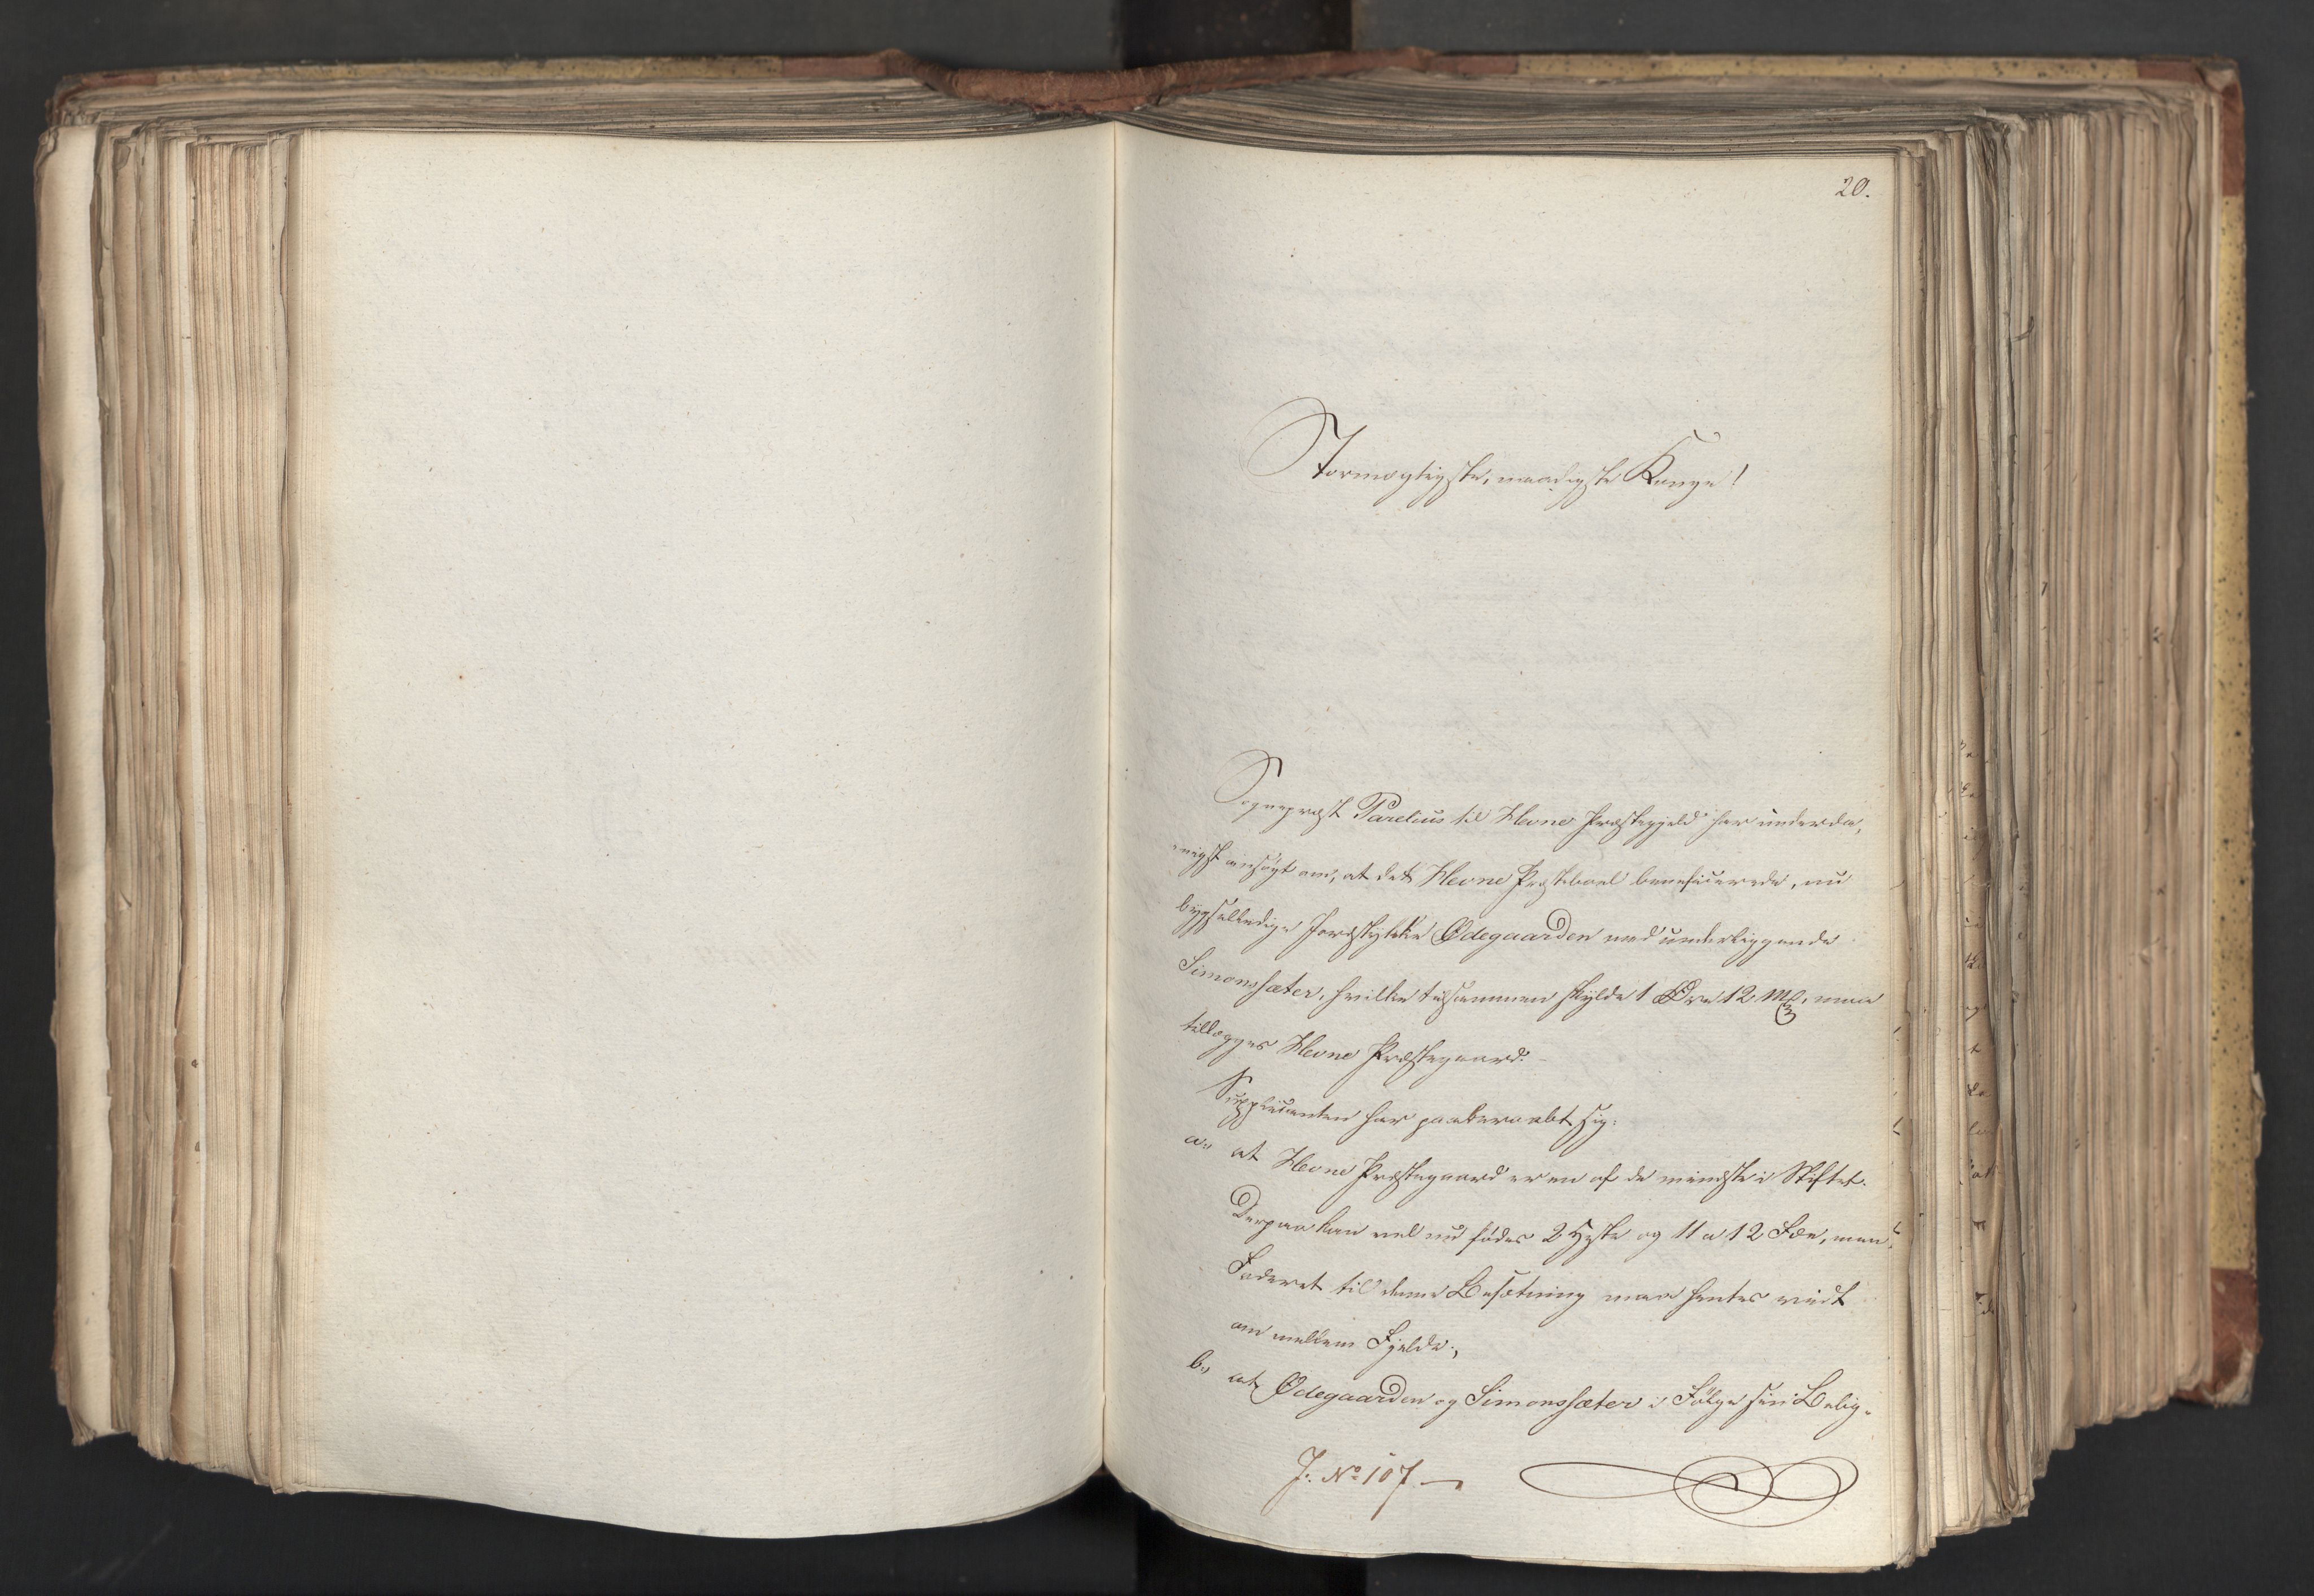 20.
Stormægtigste, naadigste Konge!
Sognepræst Parelius til Hevne Præstegjeld har underda,
nigst ansøgt om, at det Hevne Præsteboel beneficerede, nu
bygselledige Jordstykke Ødegaarden med underliggende
Simonssæter, hvilke tilsammen skylde 1 Øre 12 Mk, maa
tillægges Hevne Præstegaard. -
Supplicanten har paaberaabt sig:
a, at Hevne Præstegaard er en af de mindste i Stiftet.
Derpaa kan vel nu födes 2 Heste og 11 a 12 Fæe, men
Foderet til denne Besætning maa hentes vidt
om mellem Fjelde;
b, at Ødegaarden og Simonssæter i Følge sin Belig-
J. No 107 -